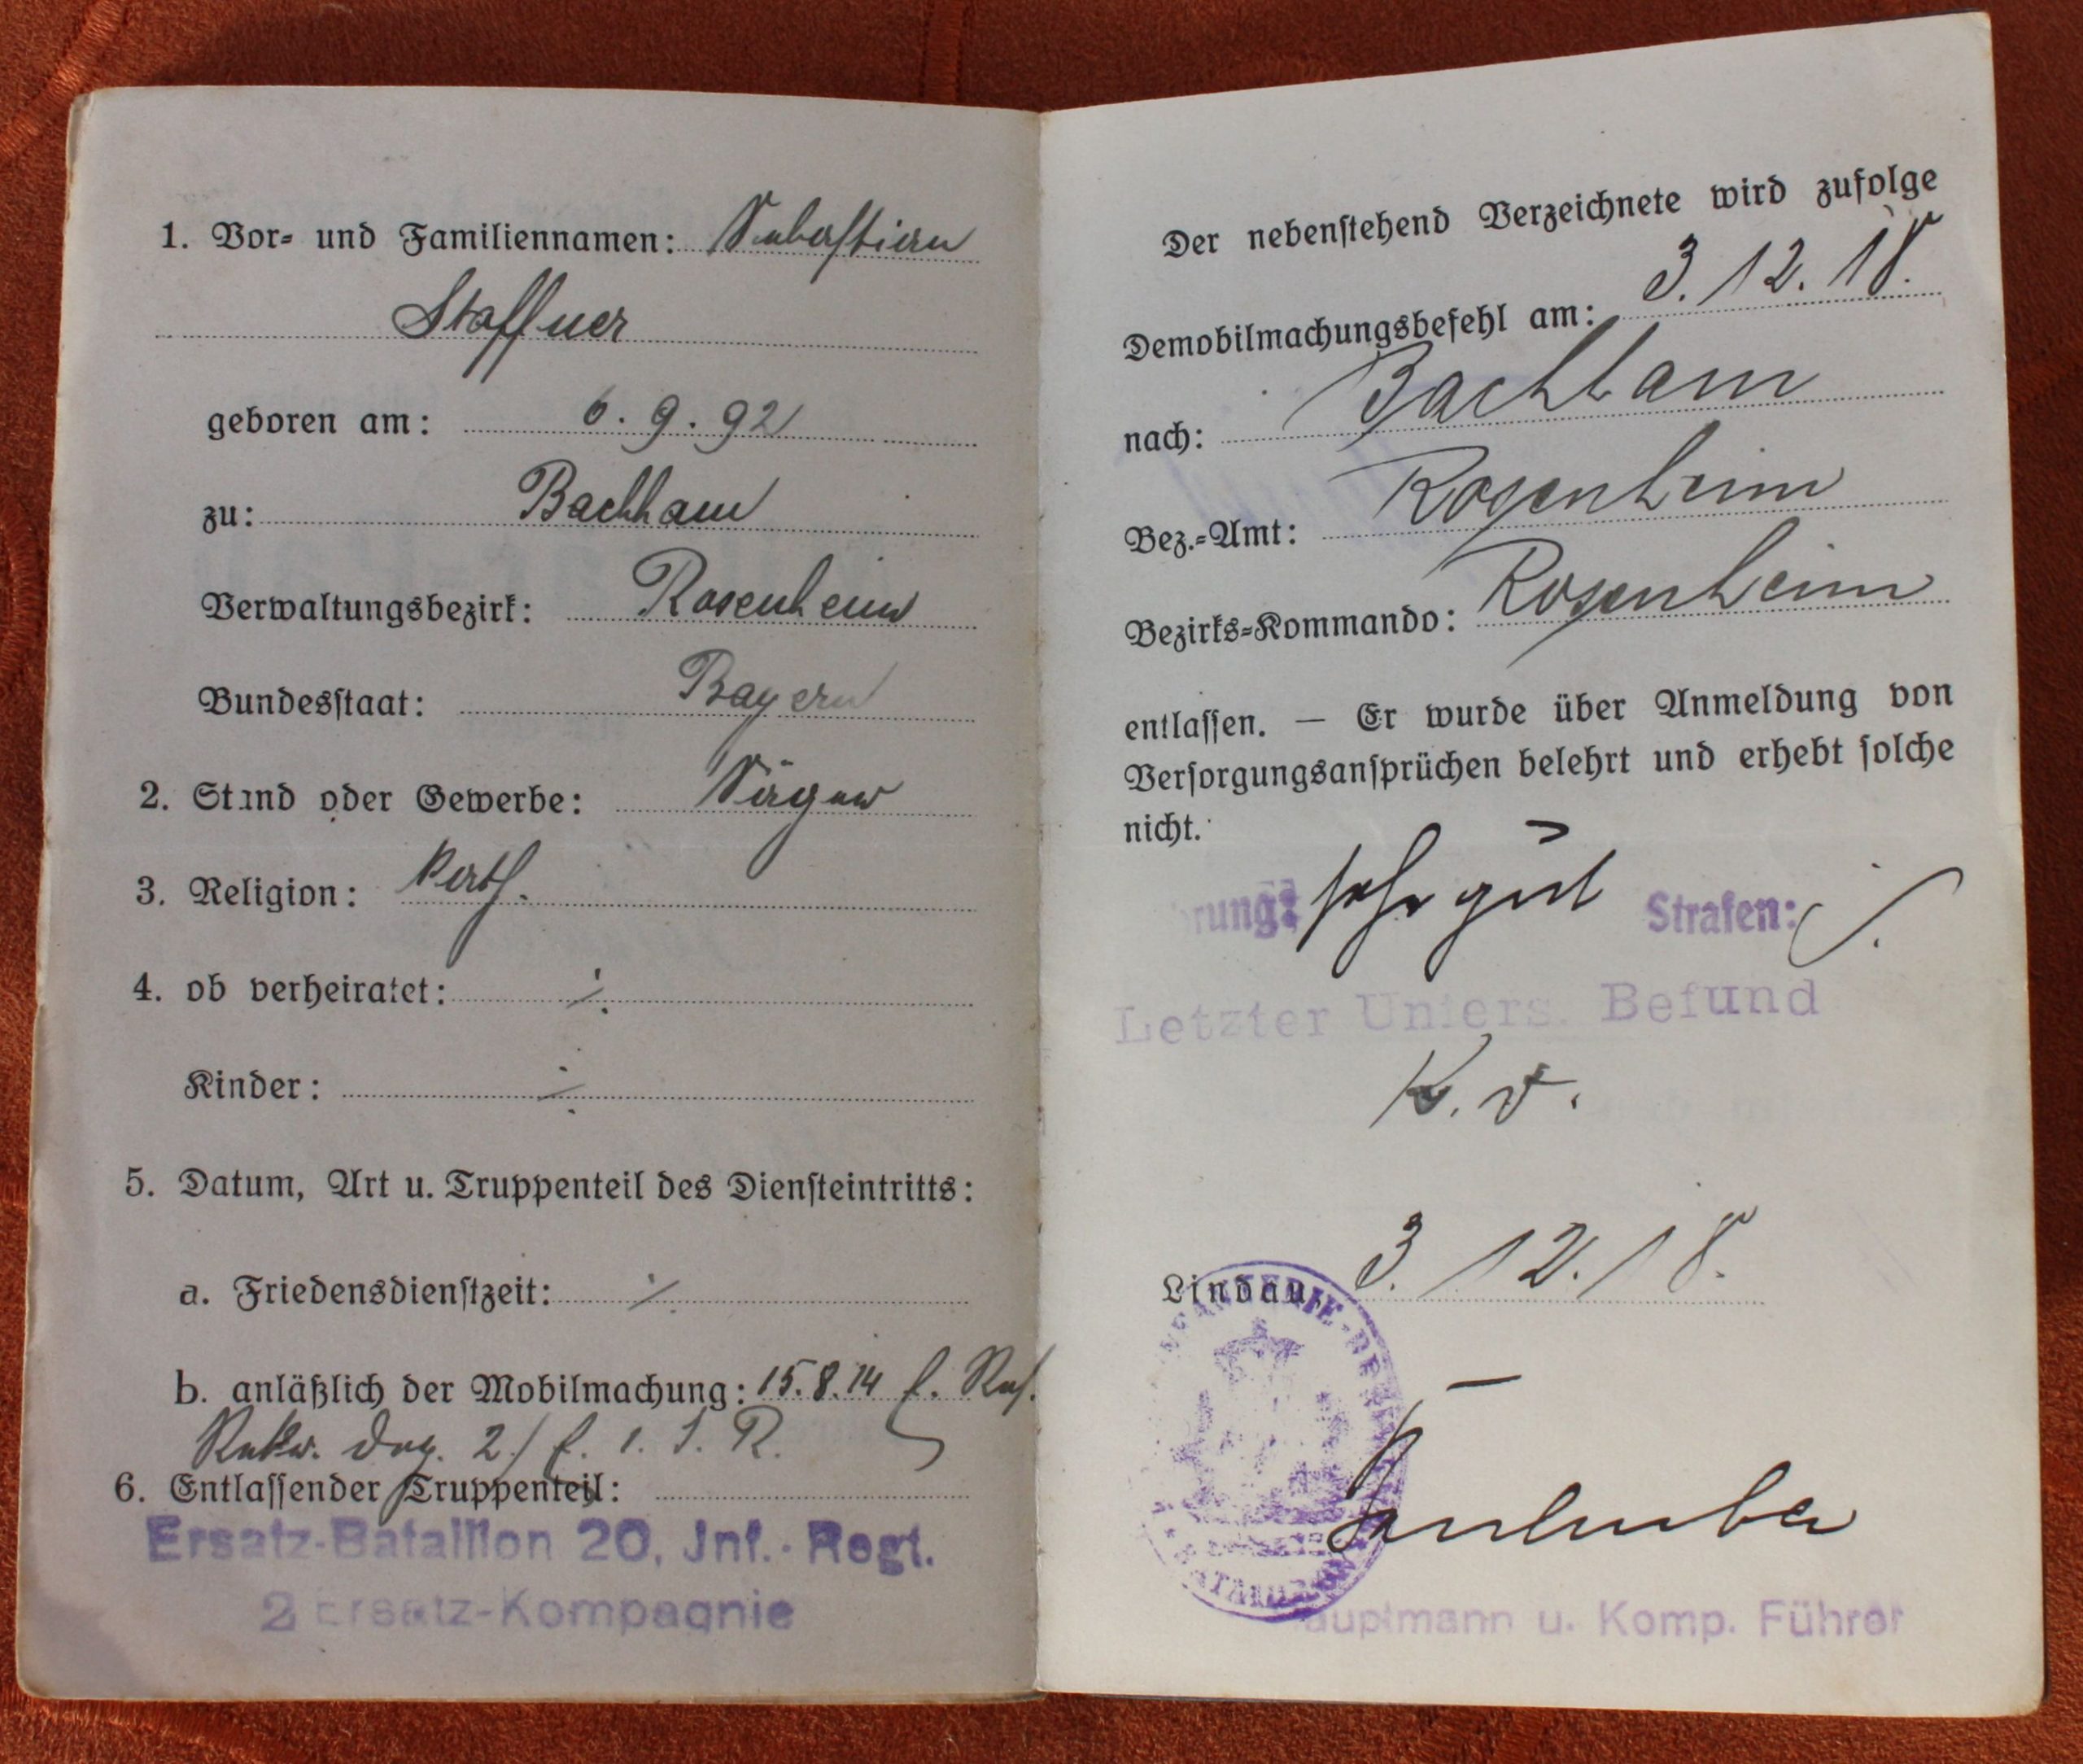 1. Vor- und Familiennamen: Sebastian
Staffner
geboren am: 6. 9. 92
zu: Bachham
Verwaltungsbezirk: Rosenheim
Bundesstaat: Bayern
2. Stand oder Gewerbe: Säger
3. Religion: kath.
4. ob verheiratet: ./.
Kinder: ./.
5. Datum, Art u. Truppenteil des Diensteintritts:
a. Friedensdienstzeit: ./.
b. anläßlich der Mobilmachung: 15.8.14
2./ 1. J. R.
6. Entlassender Truppenteil:
Ersatz-Bataillon 20. Inf.-Regt.
2 Ersatz-Kompagnie
Der nebenstehend Verzeichnete wird zufolge
Demobilmachungsbefehl am: 3. 12. 18.
nach: Bachham
Bez.-Amt: Rosenheim
Bezirks-Kommando: Rosenheim
entlassen. — Er wurde über Anmeldung von
Versorgungsansprüchen belehrt und erhebt solche
nicht.
rung: sehr gut Strafen: ./.
Letzter Unters. Befund
K. v.
Lindau, 3. 12. 18.
Hauptmann u. Komp. Führer